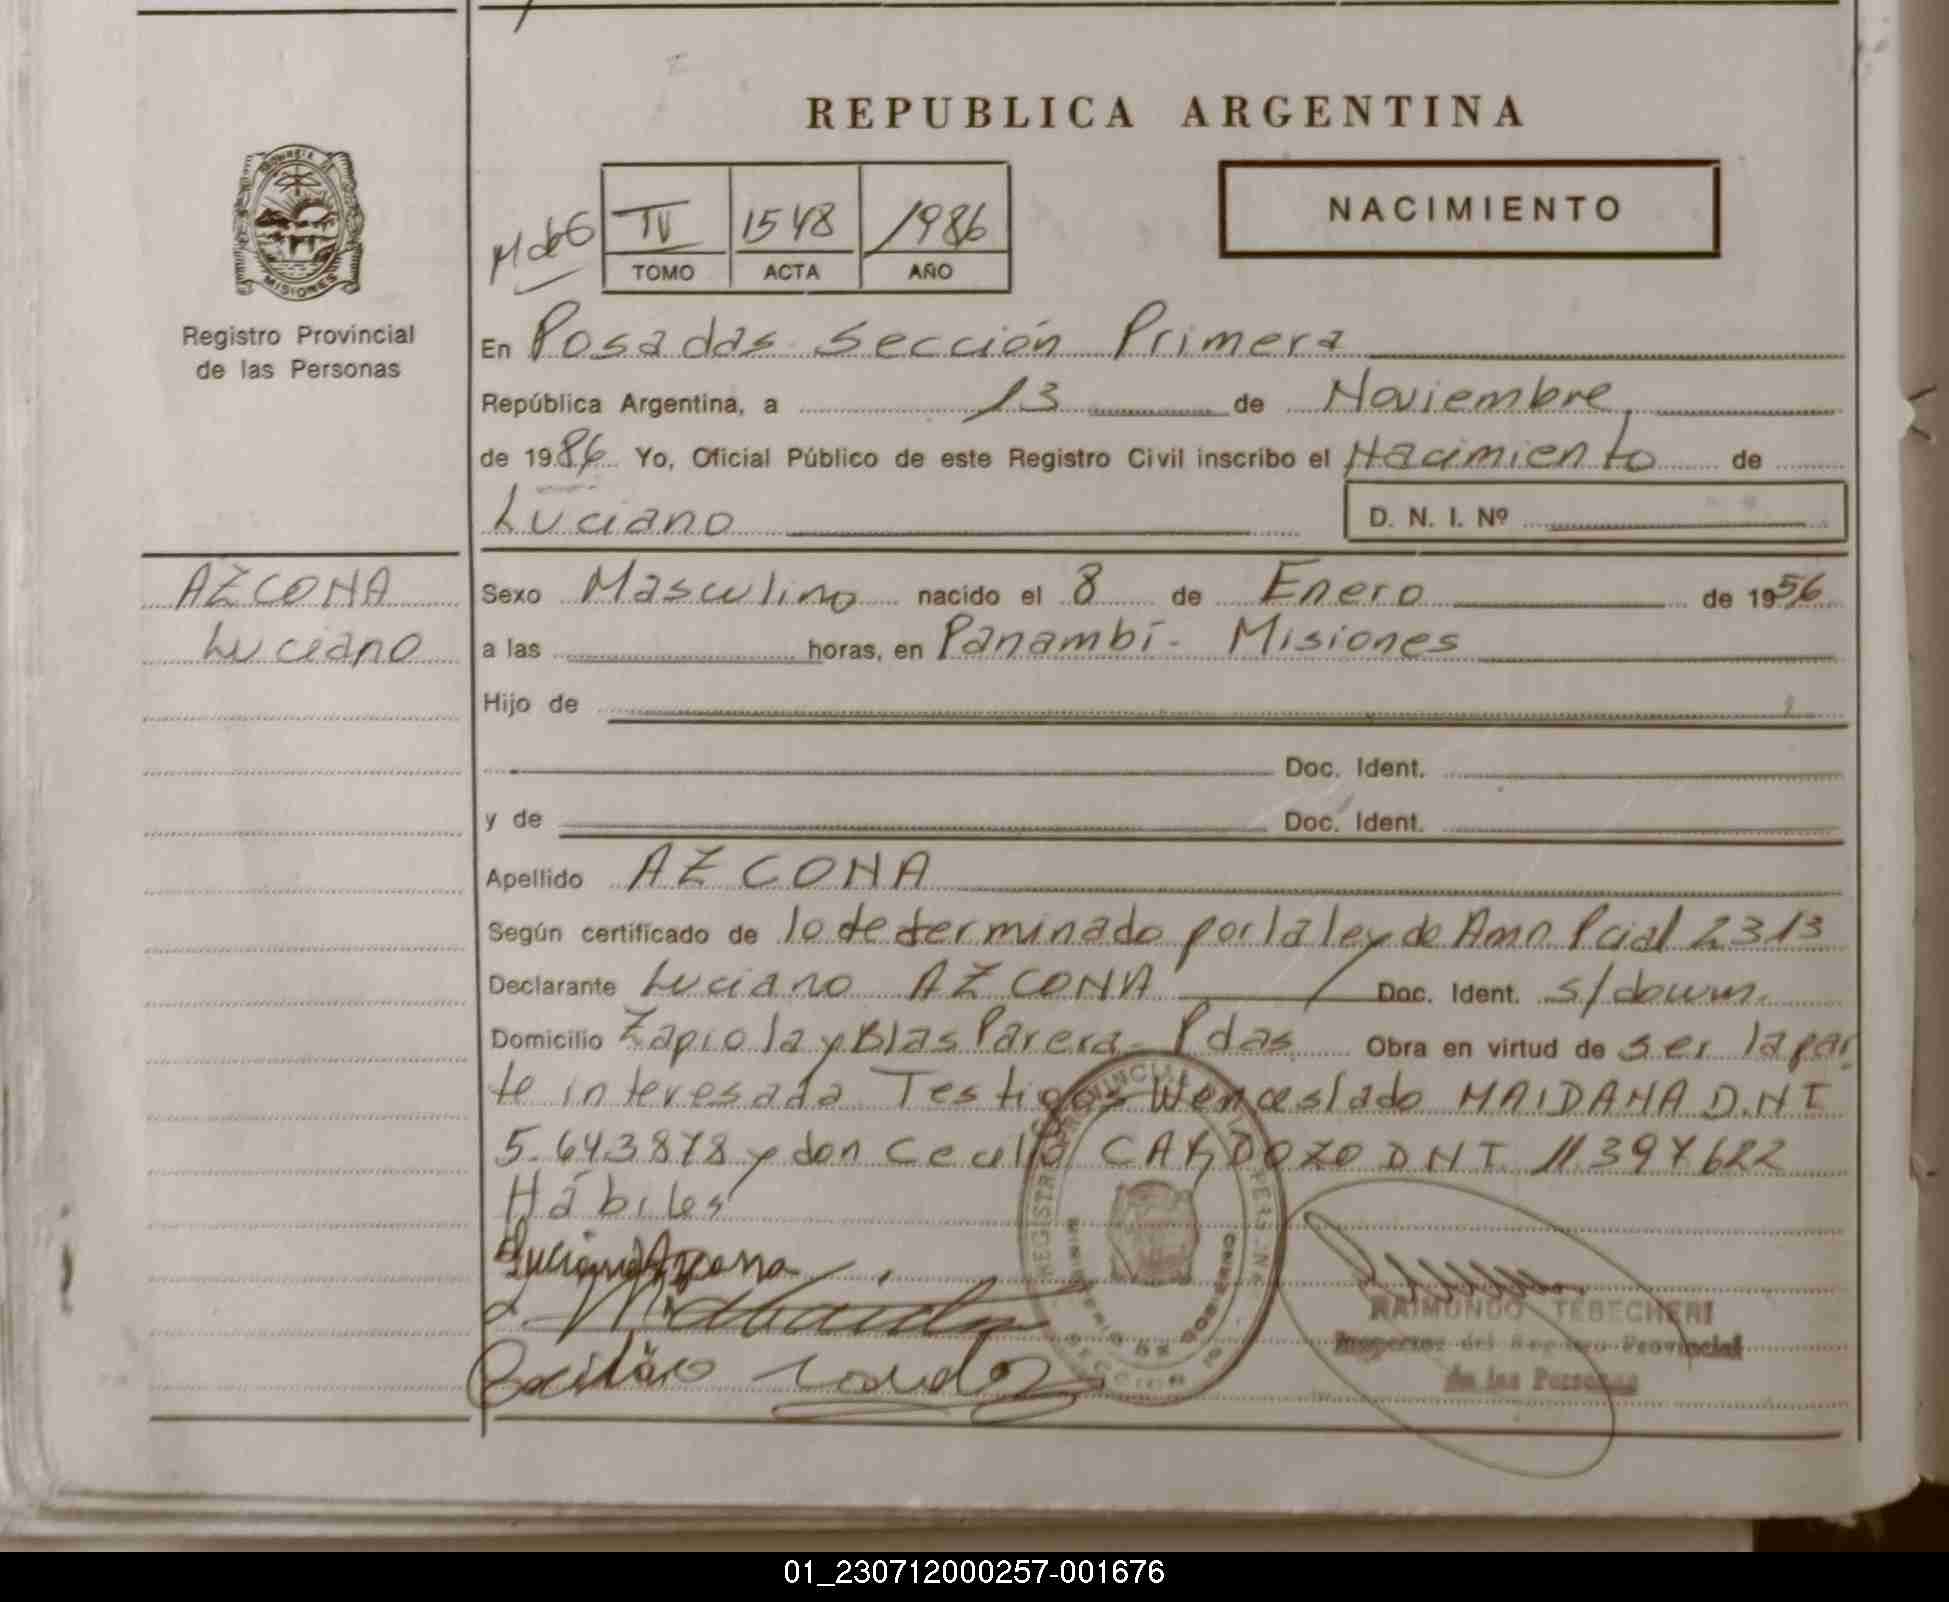 REPUBLICA ARGENTINA
PROVINCIA DE MISIONES
Registro Provincial
de las Personas
M de G
IV 1548 1986
TOMO ACTA AÑO
NACIMIENTO
En Posadas Sección Primera
República Argentina, a 13 de Noviembre
de 1986 Yo, Oficial Público de este Registro Civil inscribo el Nacimiento de
Luciano D. N. I. Nº
AZCONA
Luciano
Sexo Masculino nacido el 8 de Enero de 1956
a las horas, en Panambí - Misiones
Hijo de
Doc. Ident.
y de Doc. Ident.
Apellido AZCONA
Según certificado de lo determinado por la ley de Amn. Pcial 2313
Declarante Luciano AZCONA Doc. Ident. s/docum.
Domicilio Zapiola y Blas Parera - Pdas. Obra en virtud de ser la par
te interesada Testigos Wenceslado MAIDANA D.N I
5.643.878 y don Cecilio CARDOZO D N I 11397622
Hábiles
Luciano Azcona
RAIMUNDO TEBECHERI
Inspector del Registro Provincial
de las Personas
01_230712000257-001676